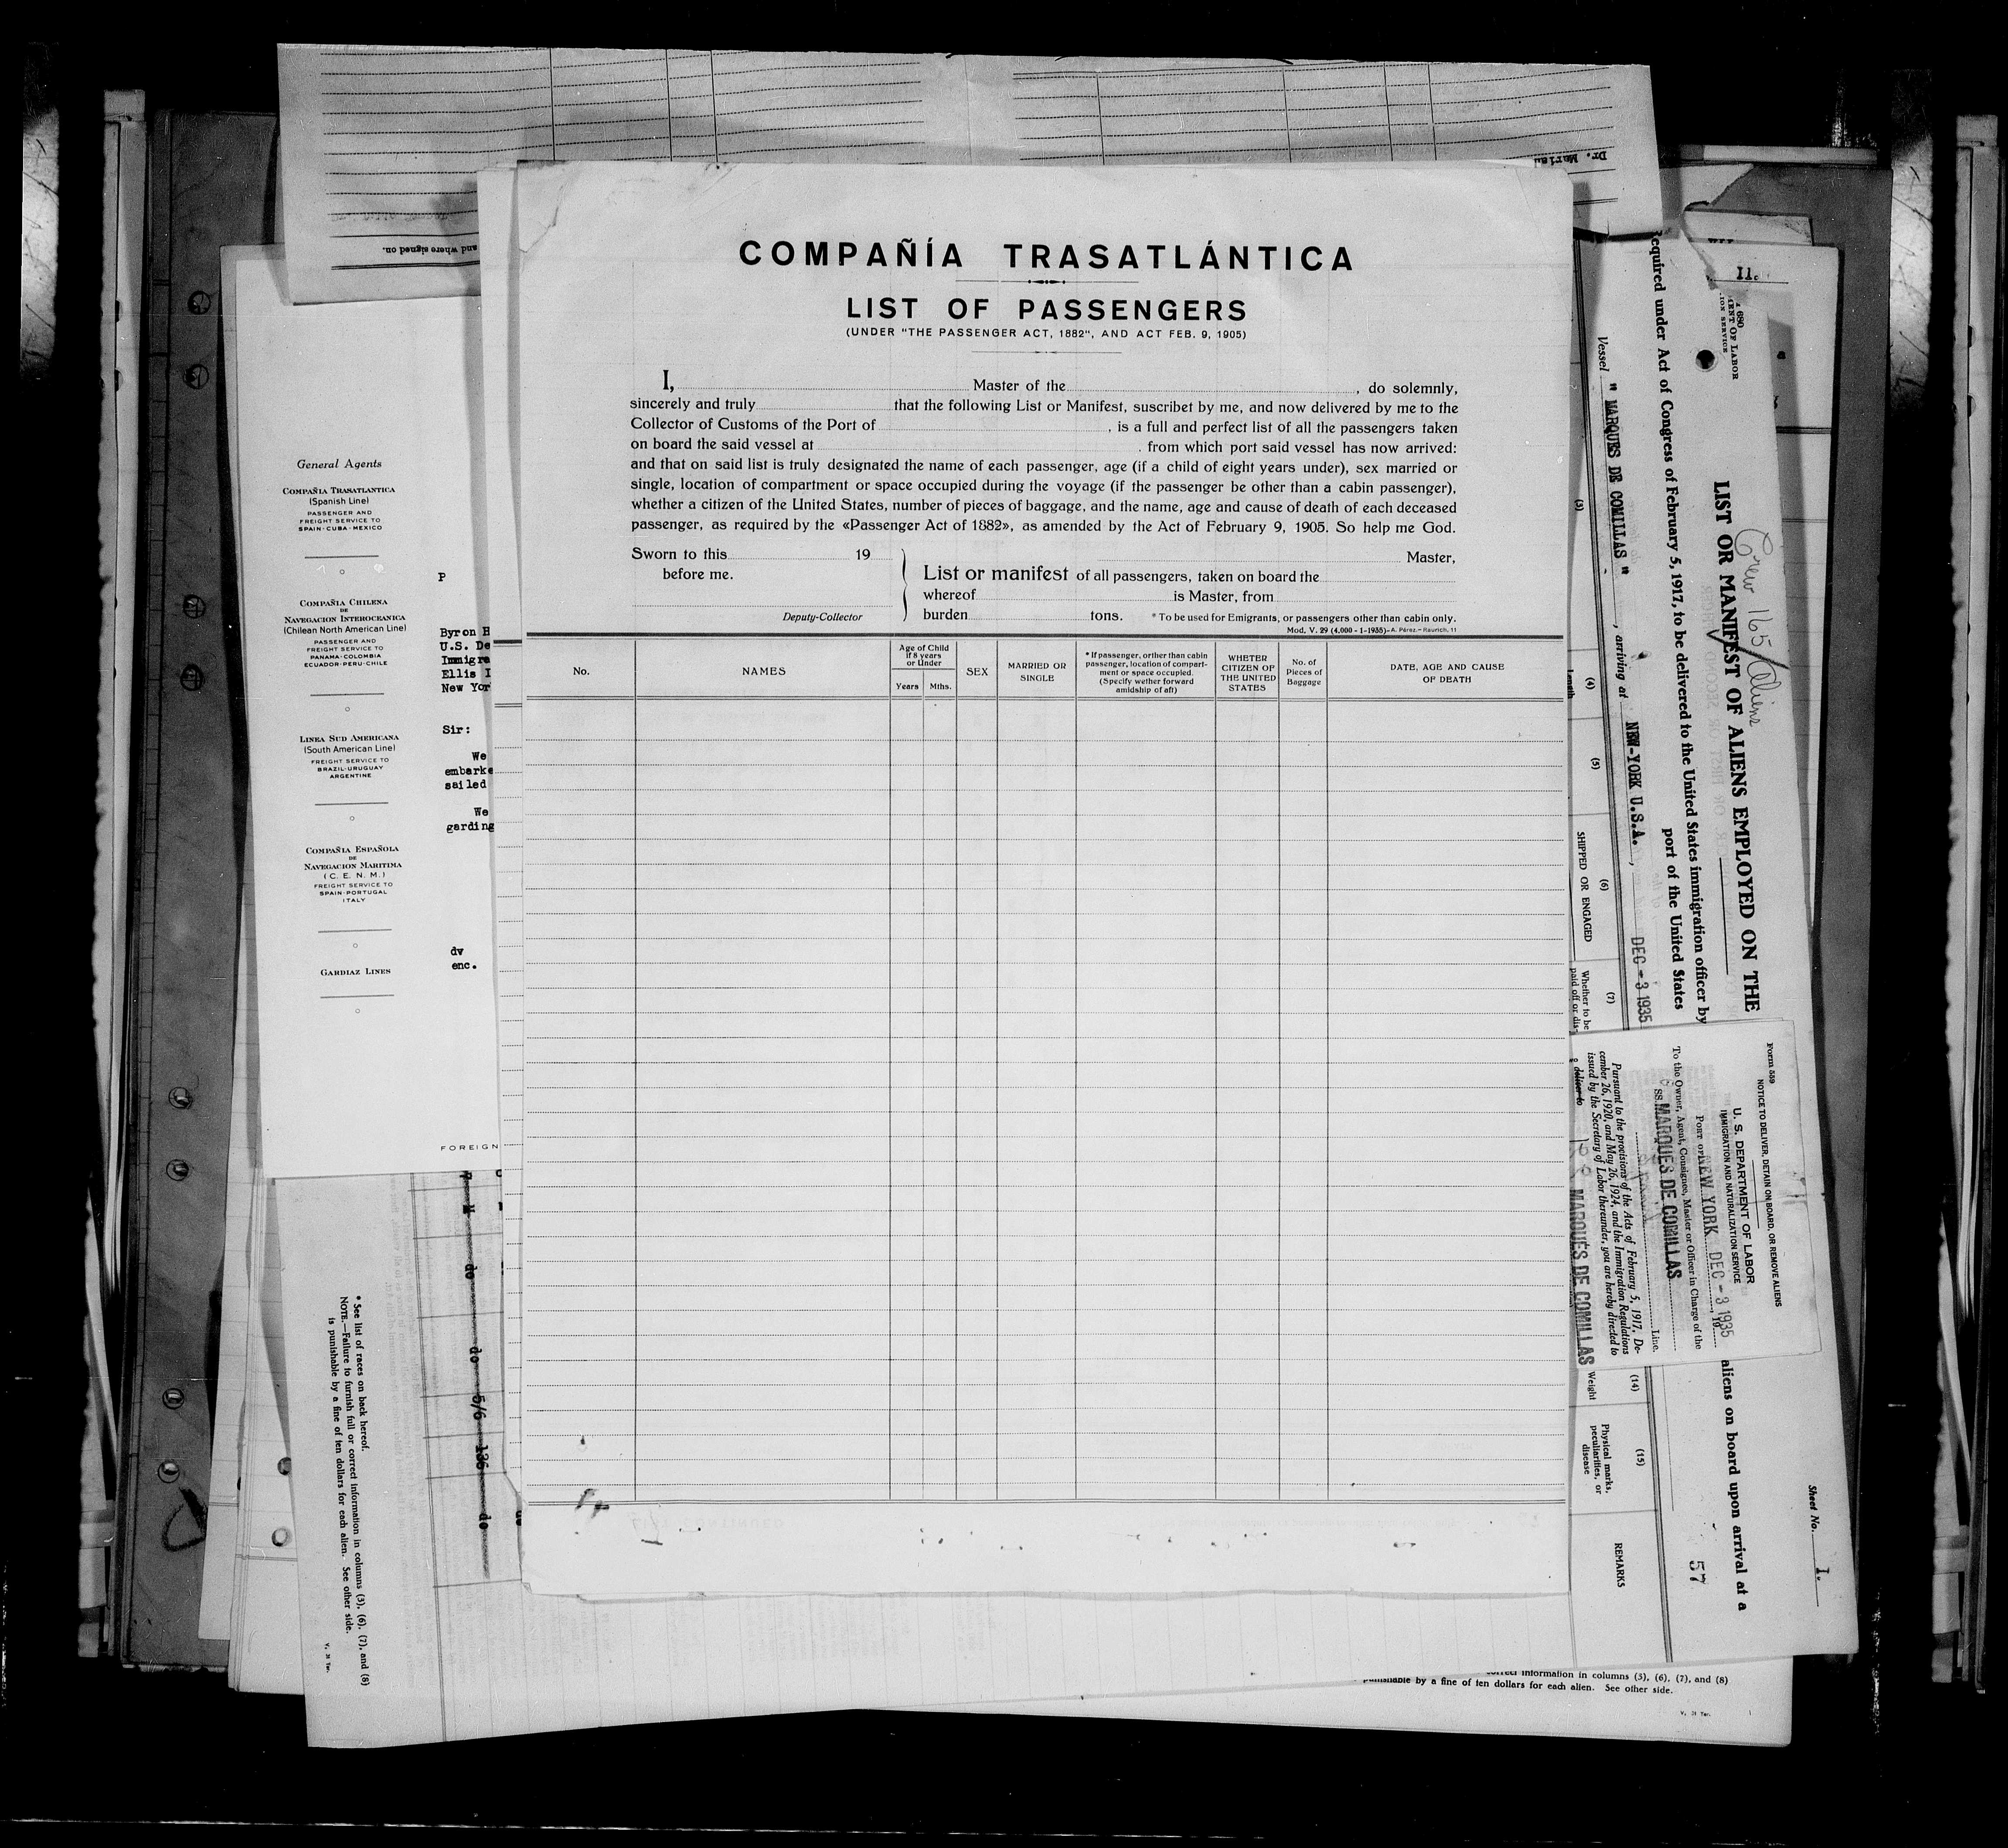 and where signed on.
Dr. Maria
COMPAÑÍA TRASATLÁNTICA
LIST OF PASSENGERS
(UNDER "THE PASSENGER ACT, 1882", AND ACT FEB. 9, 1905)
I, Master of the , do solemnly,
sincerely and truly that the following List or Manifest, suscribet by me, and now delivered by me to the
Collector of Customs of the Port of , is a full and perfect list of all the passengers taken
on board the said vessel at . from which port said vessel has now arrived:
and that on said list is truly designated the name of each passenger, age (if a child of eight years under), sex married or
single, location of compartment or space occupied during the voyage (if the passenger be other than a cabin passenger),
whether a citizen of the United States, number of pieces of baggage, and the name, age and cause of death of each deceased
passenger, as required by the «Passenger Act of 1882», as amended by the Act of February 9, 1905. So help me God.
Sworn to this 19
before me.
Deputy-Collector
Master,
List or manifest of all passengers, taken on board the
whereof is Master, from
burden tons. * To be used for Emigrants, or passengers other than cabin only.
Mod. V. 29 (4,000 - 1-1935)-A. Pérez.-Raurich, 11
No.
NAMES
Age of Child
if 8 years
or Under
Years Mths.
SEX
MARRIED OR
SINGLE
* If passenger, orther than cabin
passenger, location of compart-
ment or space occupied.
(Specify wether forward
amidship of aft)
WHETER
CITIZEN OF
THE UNITED
STATES
No. of
Pieces of
Baggage
DATE, AGE AND CAUSE
OF DEATH
General Agents
COMPAÑIA TRASATLANTICA
(Spanish Line)
PASSENGER AND
FREIGHT SERVICE TO
SPAIN·CUBA·MEXICO
COMPAÑIA CHILENA
DE
NAVEGACION INTEROCEANICA
(Chilean North American Line)
PASSENGER AND
FREIGHT SERVICE TO
PANAMA·COLOMBIA
ECUADOR·PERU·CHILE
LINEA SUD AMERICANA
(South American Line)
FREIGHT SERVICE TO
BRAZIL·URUGUAY
ARGENTINE
COMPAÑIA ESPAÑOLA
DE
NAVEGACION MARITIMA
(C. E. N. M.)
FREIGHT SERVICE TO
SPAIN·PORTUGAL
ITALY
GARDIAZ LINES
P
Byron H
U.S. De
Immigra
Ellis I
New Yor
Sir:
We
embarke
sailed
We
garding
dv
enc.
FOREIGN
M do do 5/6 136 do
* See list of races on back hereof.
NOTE.—Failure to furnish full or correct information in columns (3), (6), (7), and (8)
is punishable by a fine of ten dollars for each alien. See other side.
V. 31 Tan.
11.
680
MENT OF LABOR
ION SERVICE
Crew 165/Aliens
LIST OR MANIFEST OF ALIENS EMPLOYED ON THE
required under Act of Congress of February 5, 1917, to be delivered to the United States immigration officer by
port of the United States
Vessel " MARQUES DE COMILLAS " , arriving at NEW-YORK U.S.A. , DEC -3 1935
(3)
(4)
Length
(5)
(6)
SHIPPED OR ENGAGED
(7)
Whether to be
paid off or dis-
Form 559
NOTICE TO DELIVER, DETAIN ON BOARD, OR REMOVE ALIENS
U. S. DEPARTMENT OF LABOR
IMMIGRATION AND NATURALIZATION SERVICE
PORT OF NEW YORK DEC -3 1935, 19
To the Owner, Agent, Consignee, Master or Officer in Charge of the
SS. MARQUES DE COMILLAS
Line.
Pursuant to the provisions of the Acts of February 5, 1917, De-
cember 26, 1920, and May 26, 1924, and the Immigration Regulations
issued by the Secretary of Labor thereunder, you are hereby directed to
deliver to
MARQUES DE COMILLAS
aliens on board upon arrival at a
(14)
Weight
(15)
Physical marks,
peculiarities, or
disease
REMARKS
57
Sheet No. 1.
correct information in columns (3), (6), (7), and (8)
punishable by a fine of ten dollars for each alien. See other side.
V. 31 Tan.